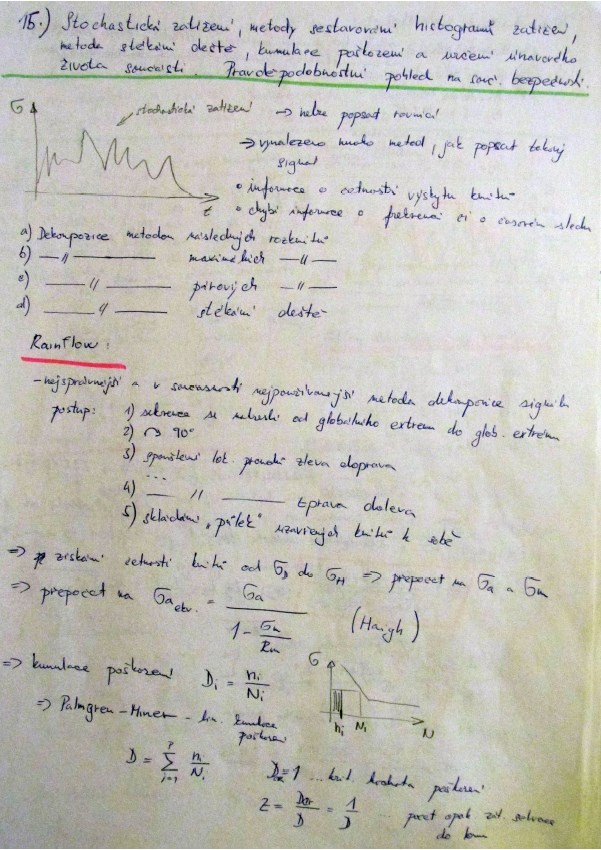 15.) Stochastická zatížení, metody sestavování histogramů zatížení,
metoda stékání deště, kumulace poškození a určení únavového
života součásti. Pravděpodobnostní pohled na souč. bezpečnosti.
σ
stochastické zatížení
t
→ nelze popsat rovnicí
→ vynalezeno mnoho metod, jak popsat takový
signál
• informace o četnosti výskytu kmitů
• chybí informace o frekvenci či o časovém sledu
a) Dekompozice metodou následných rozkmitů
b) —〃— maximálních —〃—
c) —〃— párových —〃—
d) —〃— stékání deště
Rainflow:
- nejsprávnější a v současnosti nejpoužívanější metoda dekompozice signálu
postup: 1) sekvence se nakreslí od globálního extrému do glob. extrému
2) ↷ 90°
3) spouštění lok. proudů zleva doprava
...
4) —〃— zprava doleva
5) skládání „půlek" uzavřených kmitů k sobě
⇒ získání četnosti kmitů od σD do σH ⇒ přepočet na σa a σm
⇒ přepočet na σa ekv. = σa / (1 - σm/Rm) (Haigh)
⇒ kumulace poškození Di = ni/Ni
σ
ni Ni N
⇒ Palmgren - Miner - lin. kumulace
poškození
D = Σ ni/Ni
i=1
= 1 ... krit. hodnota poškození
Z = Dkr/D = 1/D ... počet opak. zát. sekvence
do lomu